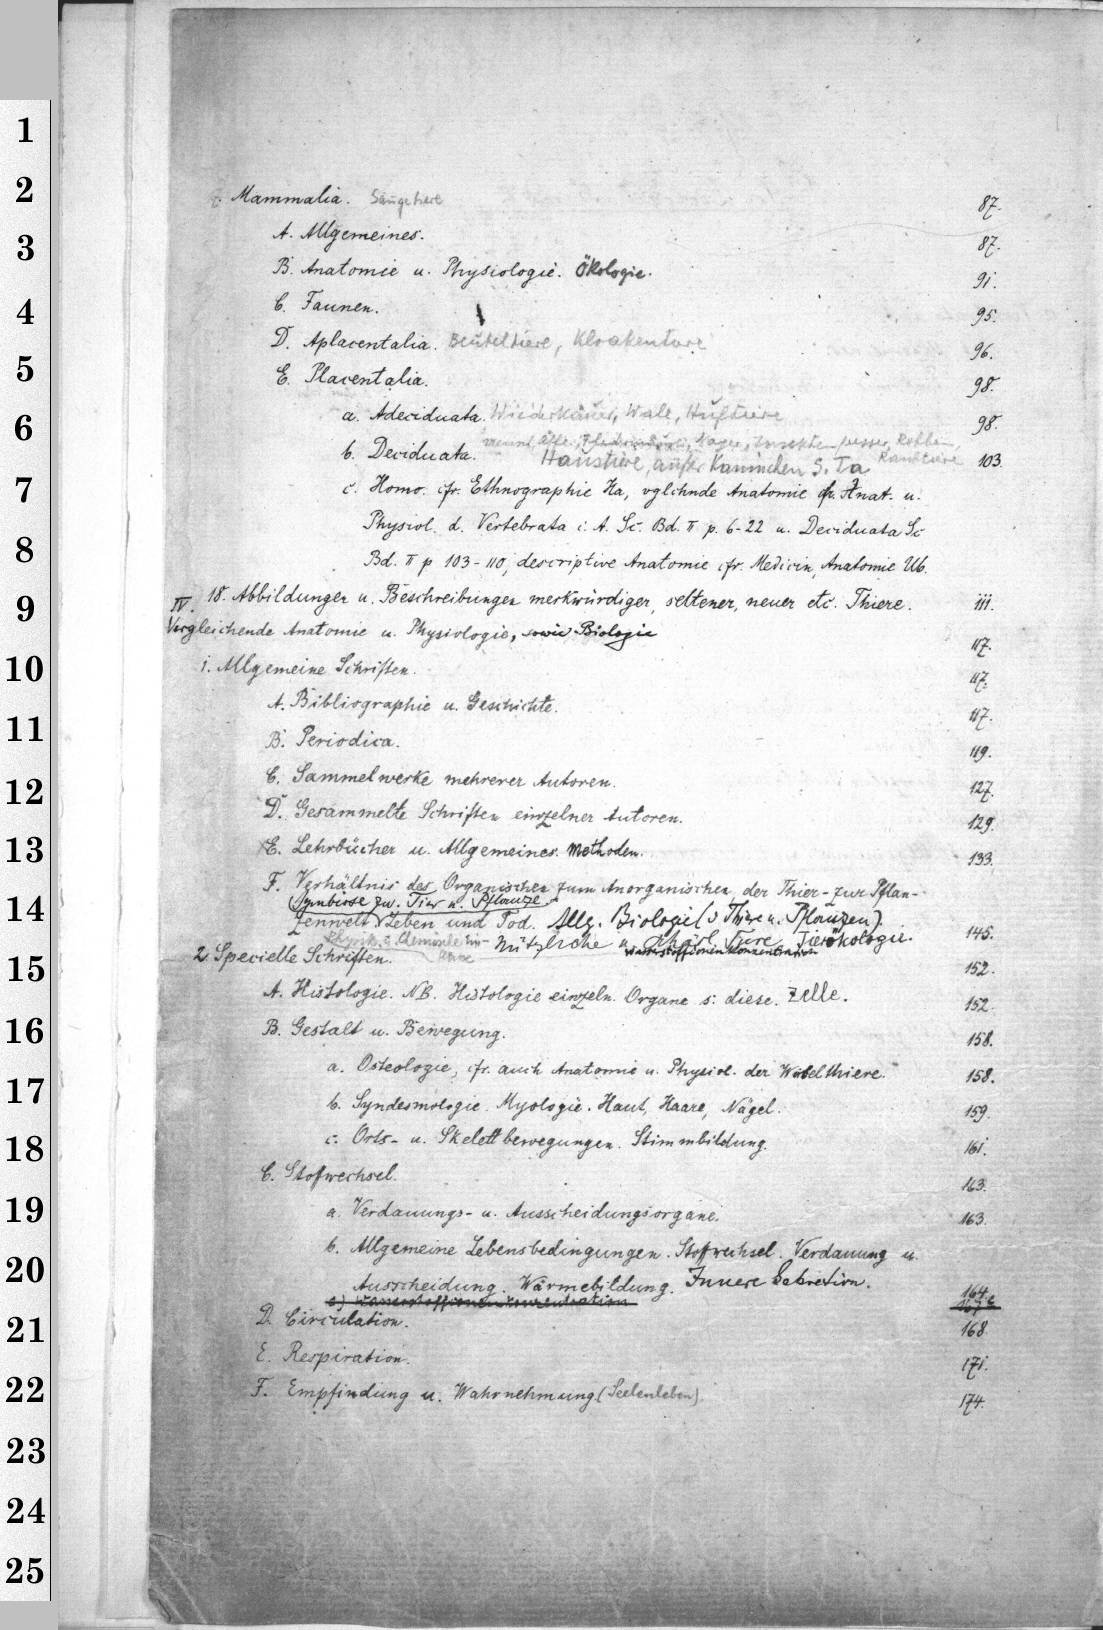 1
2
3
4
5
6
7
8
9
10
11
12
13
14
15
16
17
18
19
20
21
22
23
24
25
Mammalia. Säugetiere 87.
A. Allgemeines. 87.
B. Anatomie u. Physiologie. Ökologie. 91.
C. Faunen. 95.
D. Aplacentalia. Beuteltiere, Kloakentiere 96.
E. Placentalia. 98.
a. Adeciduata. Wiederkäuer, Wale, Huftiere 98.
Affen, Nager, Insektenfresser, Robben,
b. Deciduata. Haustiere, außer Kaninchen s. Ta Raubtiere 103.
c. Homo. cfr. Ethnographie Ha, vglchnde Anatomie cfr. Anat. u.
Physiol. d. Vertebrata i: A. Sc. Bd. II p. 6-22 u. Deciduata Sc
Bd. II p 103-110, descriptive Anatomie cfr. Medicin, Anatomie Ub.
18. Abbildungen u. Beschreibungen merkwürdiger, seltener, neuer etc. Thiere. 111.
IV. Vergleichende Anatomie u. Physiologie, sowie Biologie 117.
1. Allgemeine Schriften. 117.
A. Bibliographie u. Geschichte. 117.
B. Periodica. 119.
C. Sammelwerke mehrerer Autoren. 127.
D. Gesammelte Schriften einzelner Autoren. 129.
E. Lehrbücher u. Allgemeines. Methoden. 133.
F. Verhältnis des Organischen zum Anorganischen, der Thier- zur Pflan-
(Symbiose zw. Tier u. Pflanze
zenwelt. Leben und Tod. Allg. Biologie (v Thiere u. Pflanzen). 145.
Nützliche u. schädl. Tiere Tierökologie.
Wasserstoffionenkonzentration
2. Specielle Schriften. 152.
A. Histologie. NB. Histologie einzeln. Organe s: diese. Zelle. 152.
B. Gestalt u. Bewegung. 158.
a. Osteologie, cfr. auch Anatomie u. Physiol. der Wirbelthiere. 158.
b. Syndesmologie. Myologie. Haut, Haare, Nägel. 159.
c. Orts- u. Skelettbewegungen. Stimmbildung. 161.
C. Stoffwechsel. 163.
a. Verdauungs- u. Ausscheidungsorgane. 163.
b. Allgemeine Lebensbedingungen. Stoffwechsel. Verdauung u.
Ausscheidung. Wärmebildung. Innere Sekretion. 164.
c) Wasserstoffionenkonzentration 167 c
D. Circulation. 168
E. Respiration. 171.
F. Empfindung u. Wahrnehmung (Seelenleben) 174.